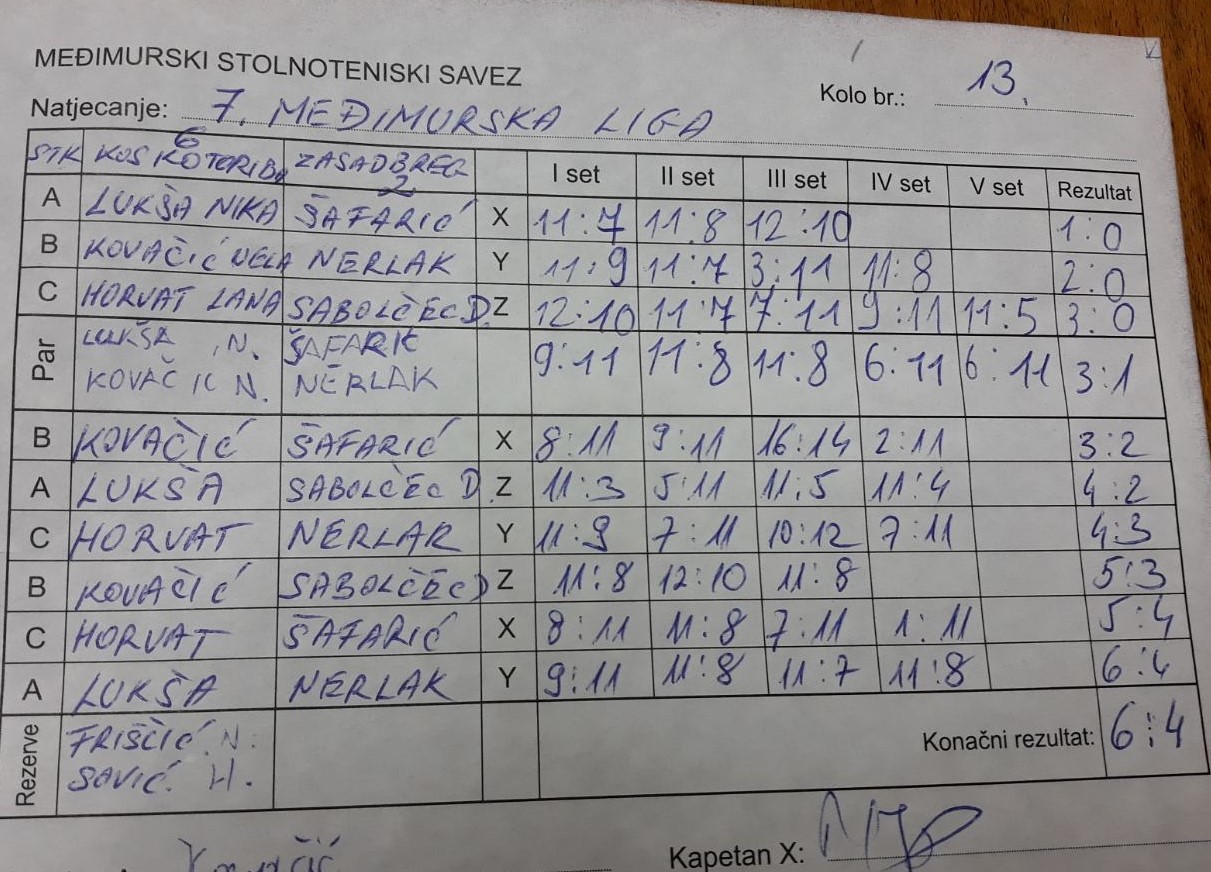 MEĐIMURSKI STOLNOTENISKI SAVEZ
Kolo br.: 13.
Natjecanje: 7. MEĐIMURSKA LIGA
STK KOS KOTORIBA 6 ZASADBREG 2 I set II set III set IV set V set Rezultat
A LUKŠA NIKA ŠAFARIĆ X 11:7 11:8 12:10 1:0
B KOVAČIĆ NELA NERLAK Y 11:9 11:7 3:11 11:8 2:0
C HORVAT LANA SABOLČEC D. Z 12:10 11:7 7:11 9:11 11:5 3:0
Par LUKŠA, N. ŠAFARIĆ 9:11 11:8 11:8 6:11 6:11 3:1
KOVAČIĆ N. NERLAK
B KOVAČIĆ ŠAFARIĆ X 8:11 9:11 16:14 2:11 3:2
A LUKŠA SABOLČEC D. Z 11:3 5:11 11:5 11:4 4:2
C HORVAT NERLAK Y 11:9 7:11 10:12 7:11 4:3
B KOVAČIĆ SABOLČEC D Z 11:8 12:10 11:8 5:3
C HORVAT ŠAFARIĆ X 8:11 11:8 7:11 1:11 5:4
A LUKŠA NERLAK Y 9:11 11:8 11:7 11:8 6:4
Rezerve FRIŠČIĆ. N.
SAVIĆ. H.
Konačni rezultat: 6:4
Kapetan X: